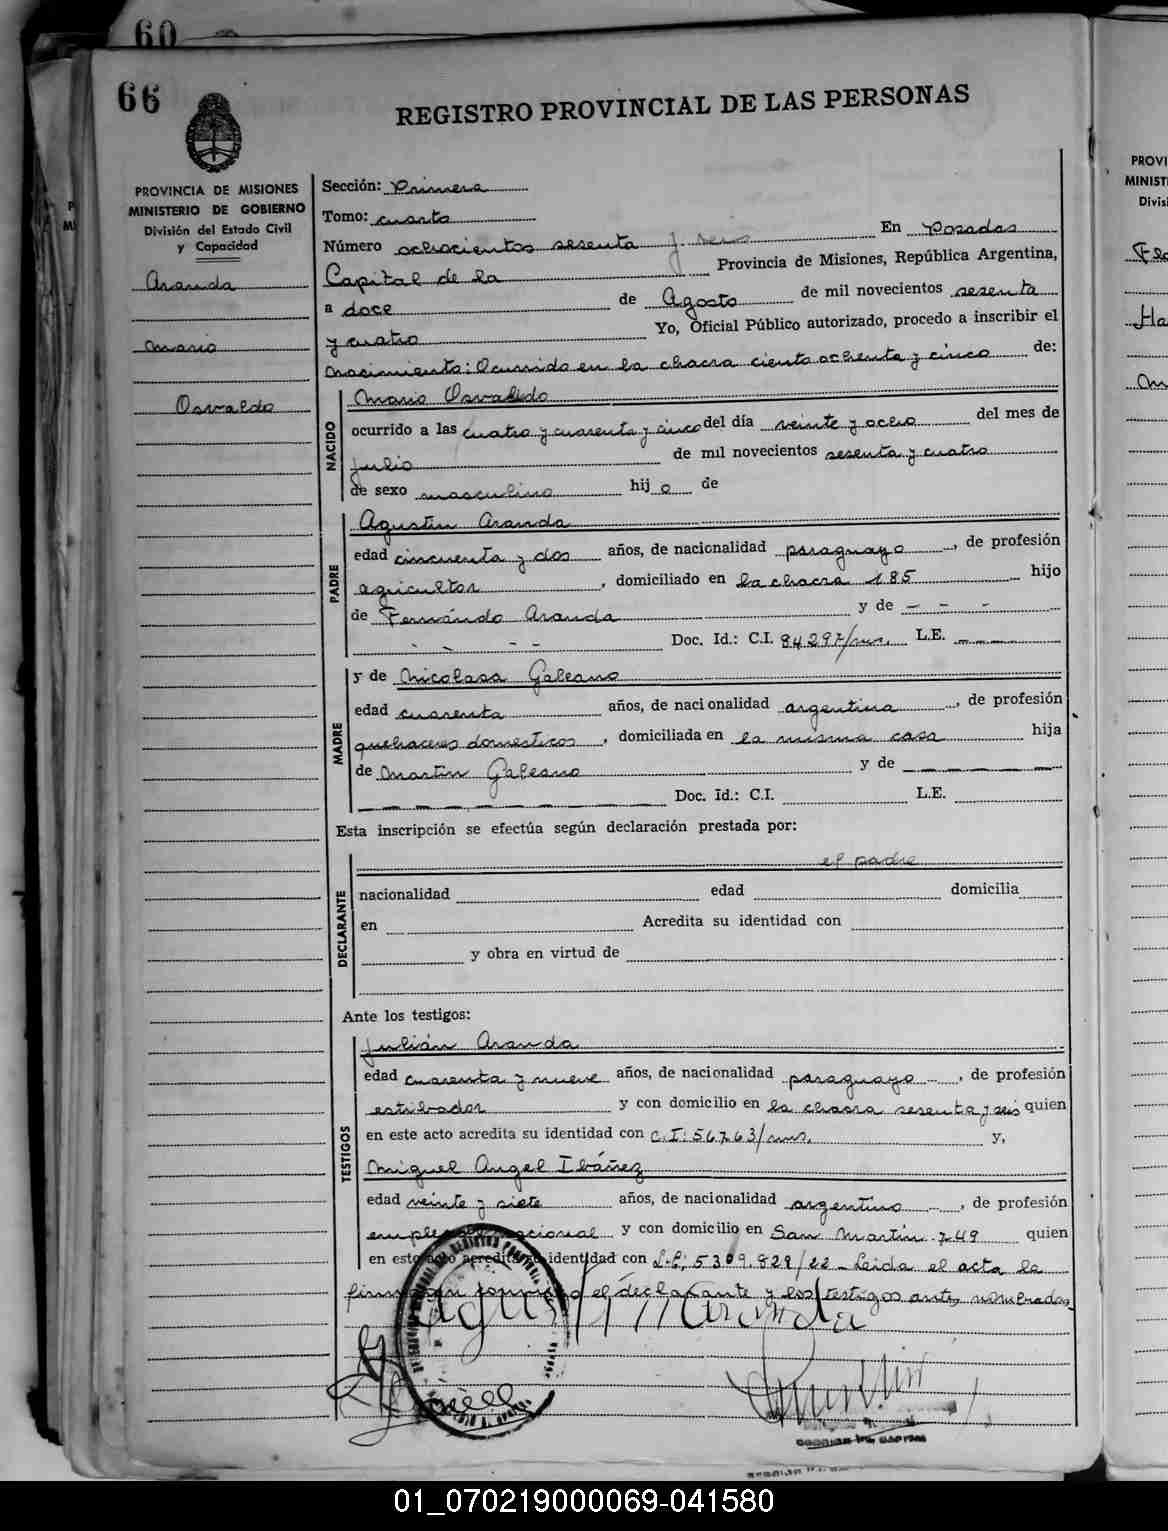 60
66
REGISTRO PROVINCIAL DE LAS PERSONAS
PROVINCIA DE MISIONES
MINISTERIO DE GOBIERNO
División del Estado Civil
y Capacidad
Aranda
Mario
Osvaldo
Sección: Primera
Tomo: cuarto
Número ochocientos sesenta y seis En Posadas
Capital de la Provincia de Misiones, República Argentina,
a doce de Agosto de mil novecientos sesenta
y cuatro Yo, Oficial Público autorizado, procedo a inscribir el
nacimiento: Ocurrido en la chacra ciento ochenta y cinco de:
NACIDO
Mario Osvaldo
ocurrido a las cuatro y cuarenta y cinco del día veinte y ocho del mes de
Julio de mil novecientos sesenta y cuatro
de sexo masculino hijo de
PADRE
Agustin Aranda
edad cincuenta y dos años, de nacionalidad paraguayo, de profesión
agricultor, domiciliado en la chacra 185 hijo
de Fernándo Aranda y de - - -
- - - - Doc. Id.: C.I. 84297/mns. L.E. ----
MADRE
y de Nicolasa Galeano
edad cuarenta años, de nacionalidad argentina, de profesión
quehaceres domesticos, domiciliada en la misma casa hija
de Martin Galeano y de -----
Doc. Id.: C.I. L.E.
Esta inscripción se efectúa según declaración prestada por:
DECLARANTE
el padre
nacionalidad edad domicilia
en Acredita su identidad con
y obra en virtud de
Ante los testigos:
TESTIGOS
Julián Aranda
edad cuarenta y nueve años, de nacionalidad paraguayo, de profesión
estibador y con domicilio en la chacra sesenta y seis quien
en este acto acredita su identidad con C.I: 56763/mns. y,
Miguel Angel Ibáñez
edad veinte y siete años, de nacionalidad argentino, de profesión
empleado nacional y con domicilio en San Martin 749 quien
en este acto acredita su identidad con L.E; 5309.829/22 - Leida el acta la
firman conmigo el declarante y los testigos antes nombrados
Agustin Aranda
PROVI
MINIST
Divis
01_070219000069-041580